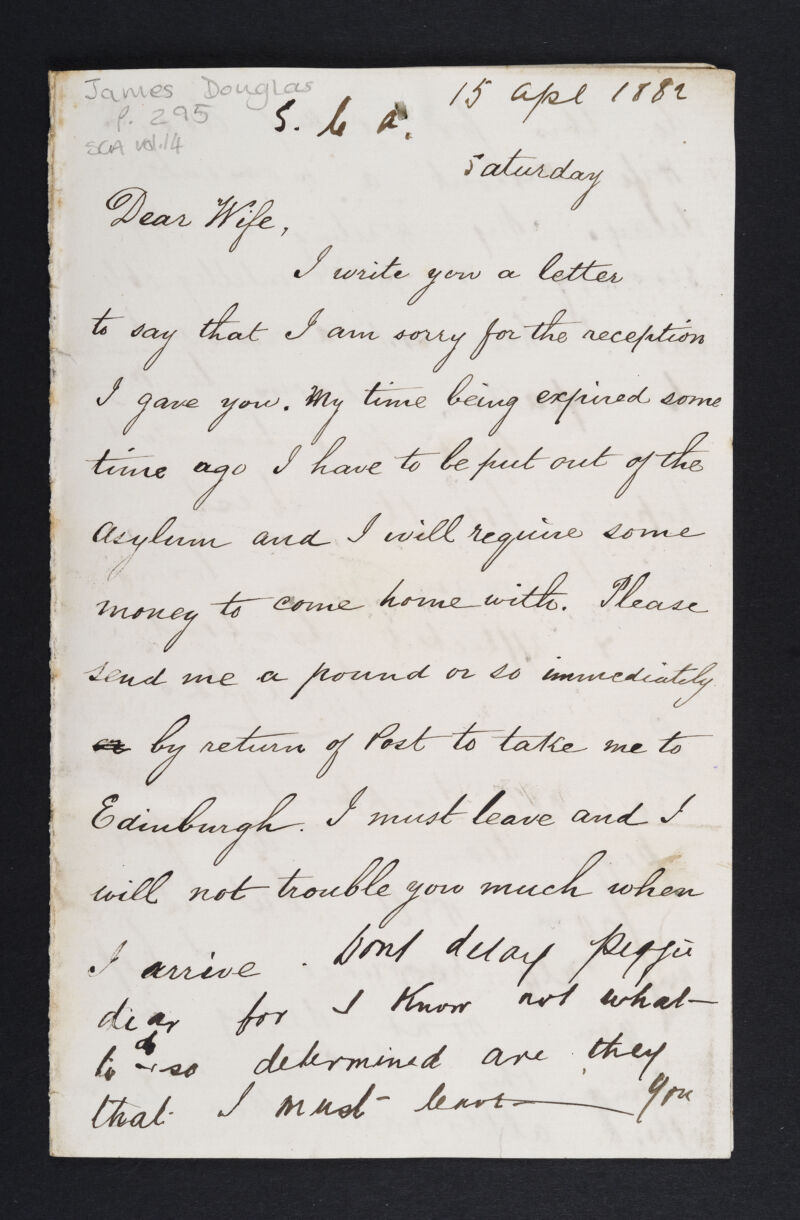 James Douglas
p. 295
SCA vol.14
15 Apl 1882
S. C A.
Saturday
Dear Wife,
I write you a letter
to say that I am sorry for the reception
I gave you. My time being expired some
time ago I have to be put out of the
Asylum and I will require some
money to come home with. Please
send me a pound or so immediately
by return of Post to take me to
Edinburgh. I must leave and I
will not trouble you much when
I arrive. Dont delay Peggie
dear for I know not what
to do so determined are they
that I must leave — You